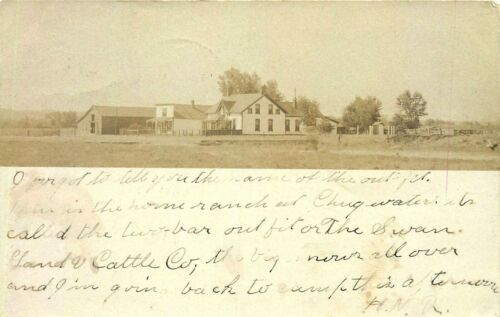 I forgot to tell you the name of the outfit.
This is the home ranch at Chugwater. its
called the two-bar outfit or The Swan
Land & Cattle Co, the all over
and I'm going back to camp this afternoon
H.N.R.